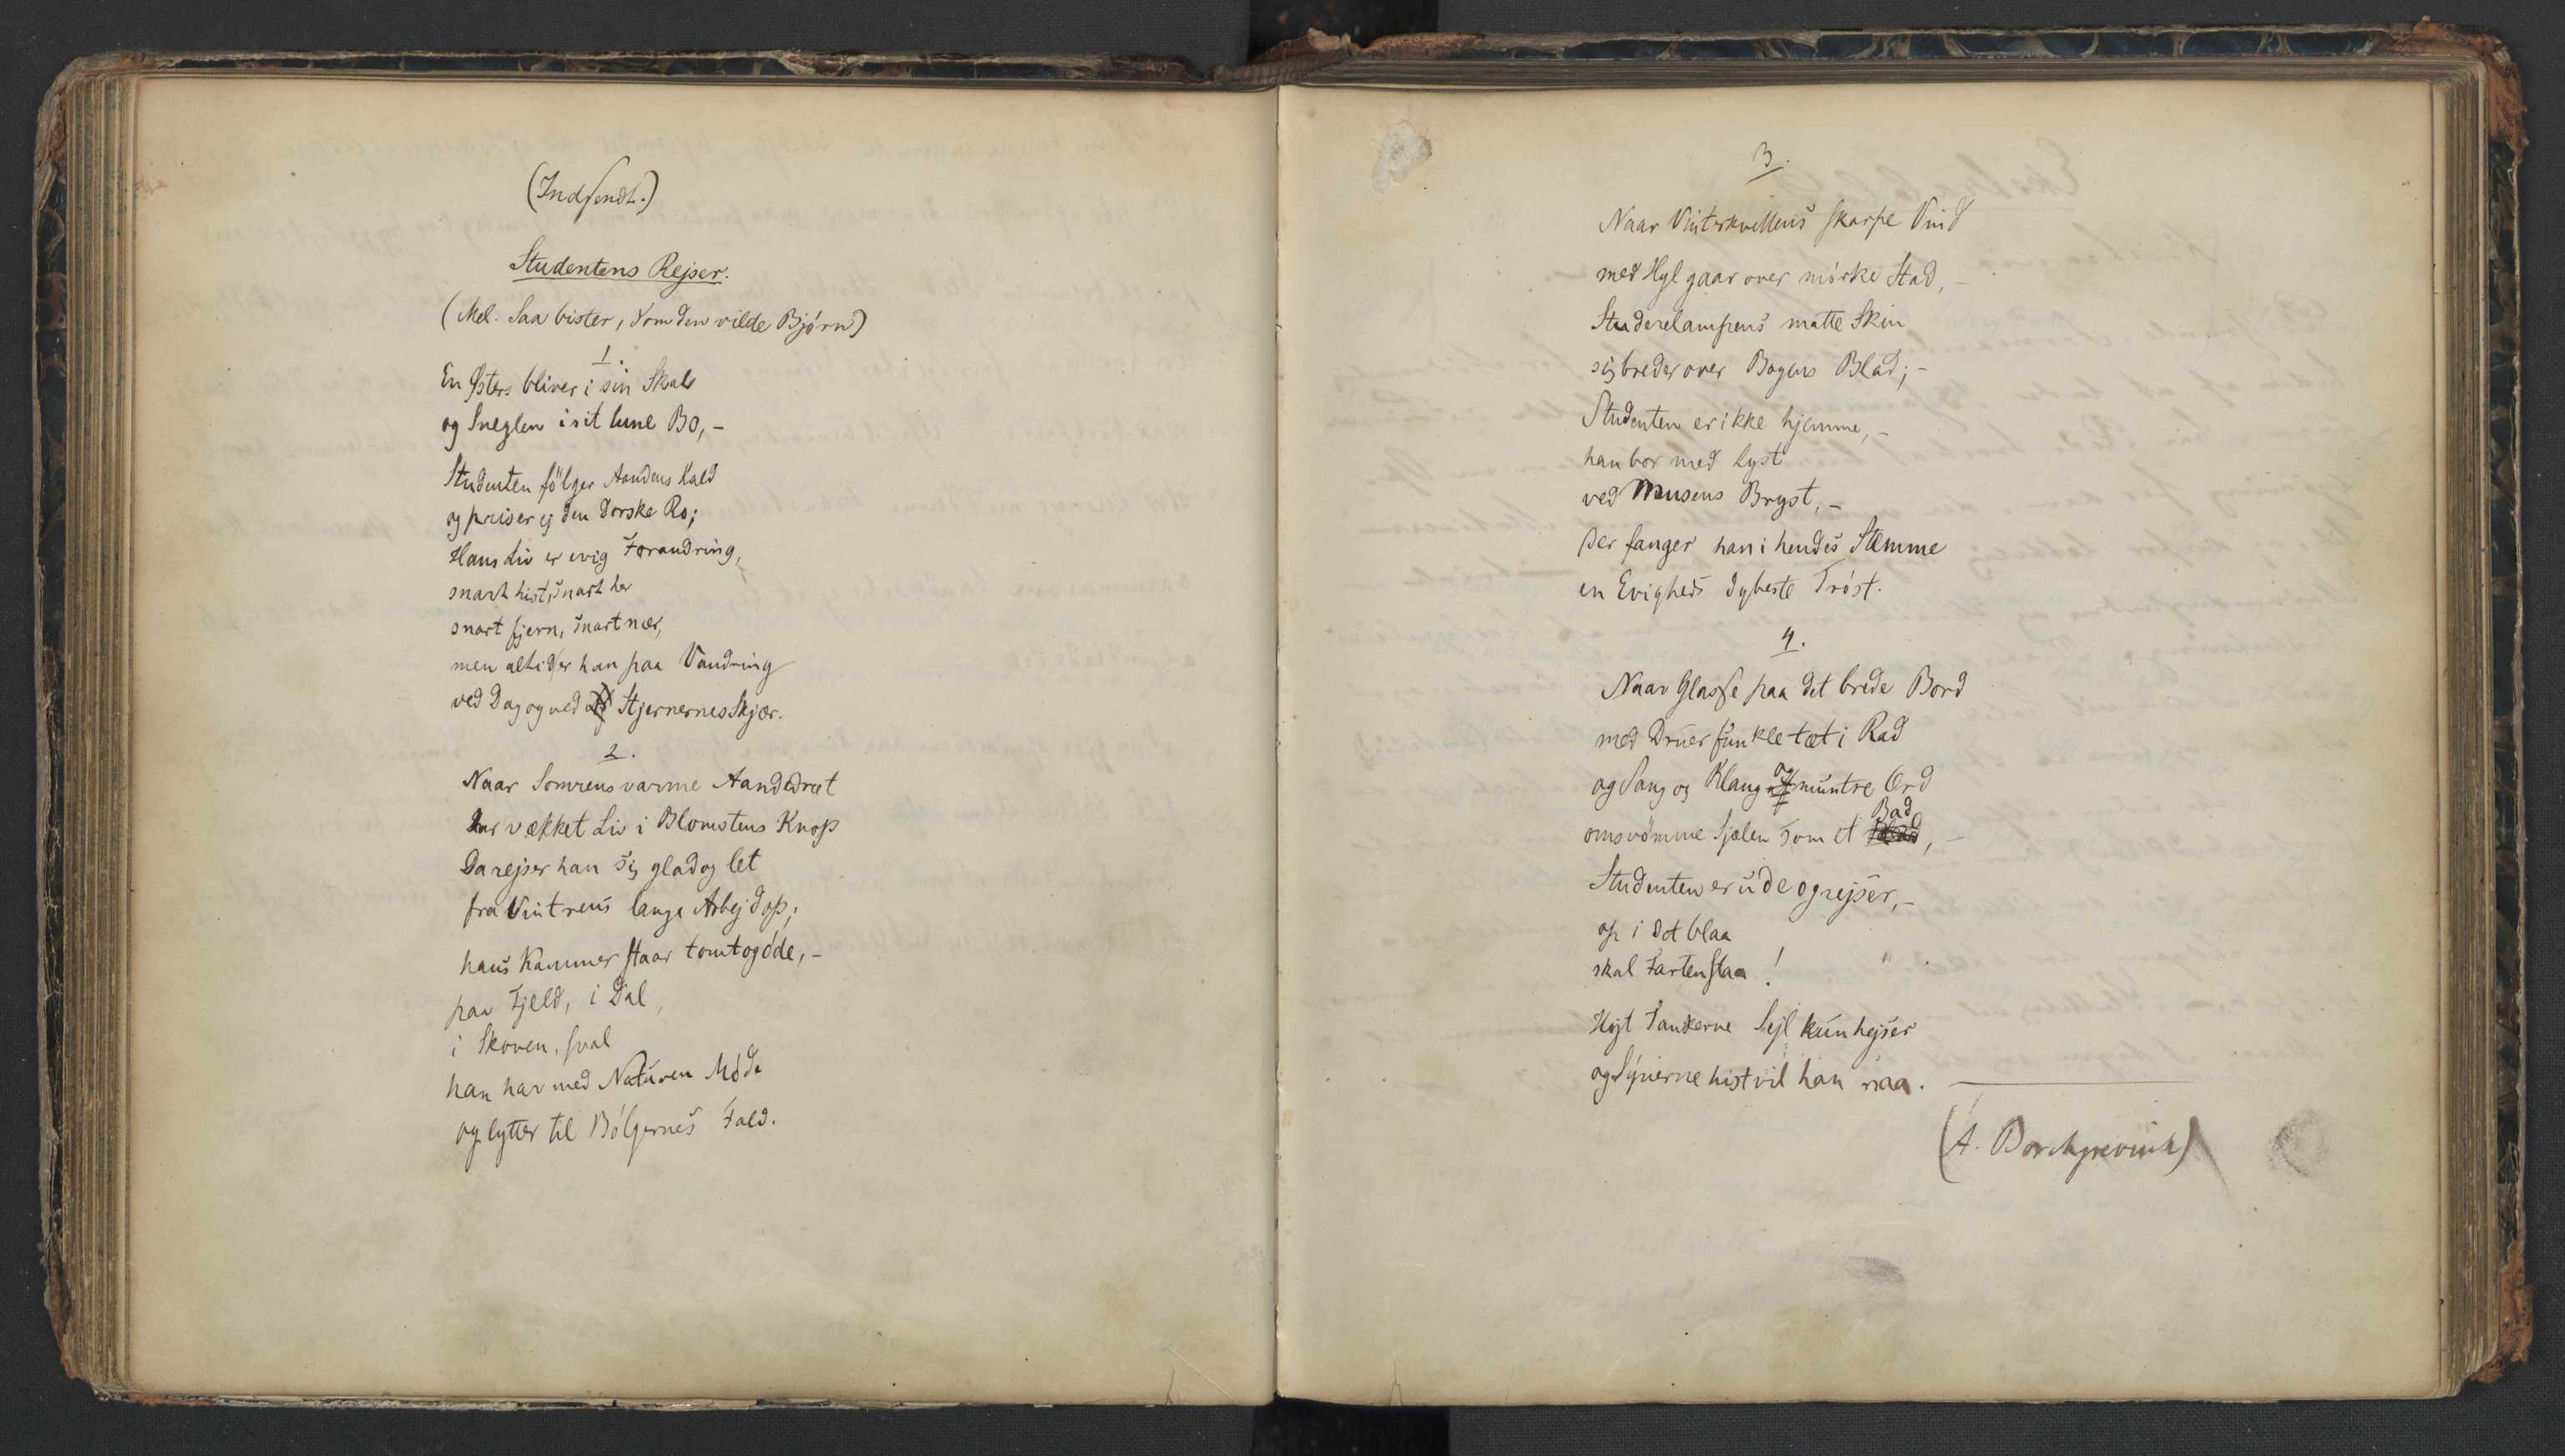 (Indsendt.)
Studentens Rejser.
(Mel. Saa bister, som den vilde Bjørn)
1.
En Østers bliver i sin Skal
og Sneglen i sit lune Bo, -
Studenten følger Aandens Kald
og priser ej den dorske Ro;
Hans Liv er evig Forandring,
snart hist, snart her
snart fjern, snart nær,
men altid er han paa Vandring
ved Dag og ved Stjernernes Skjær.
2.
Naar Somrens varme Aandedræt
har vækket Liv i Blomstens Knop
Da rejser han sig glad og let
fra Vintrens lange Arbejd op;
hans Kammer staar tomt og øde, -
paa Fjeld, i Dal,
i Skoven, sval
han har med Naturen Møde
og lytter til Bølgernes Fald.
3.
Naar Vinterkvellens skarpe Vind
med Hyl gaar over mørke Stad, -
Studerelampens matte Skin
sig breder over Bogens Blad; -
Studenten er ikke hjemme, -
han bor med Lyst
ved Musens Bryst, -
der fanger han i hendes Stemme
en Evigheds dybeste Trøst.
4.
Naar Glasse paa det brede Bord
med Druer funkle tæt i Rad
og Sang og Klang og muntre Ord
omsvømme Sjælen som et Bad, -
Studenten er ude og rejser, -
op i det blaa
skal Farten staa!
Højt Tankerne Sejl kun hejser
og Synerne hist vil han naa.
(A. Borchgrevink)